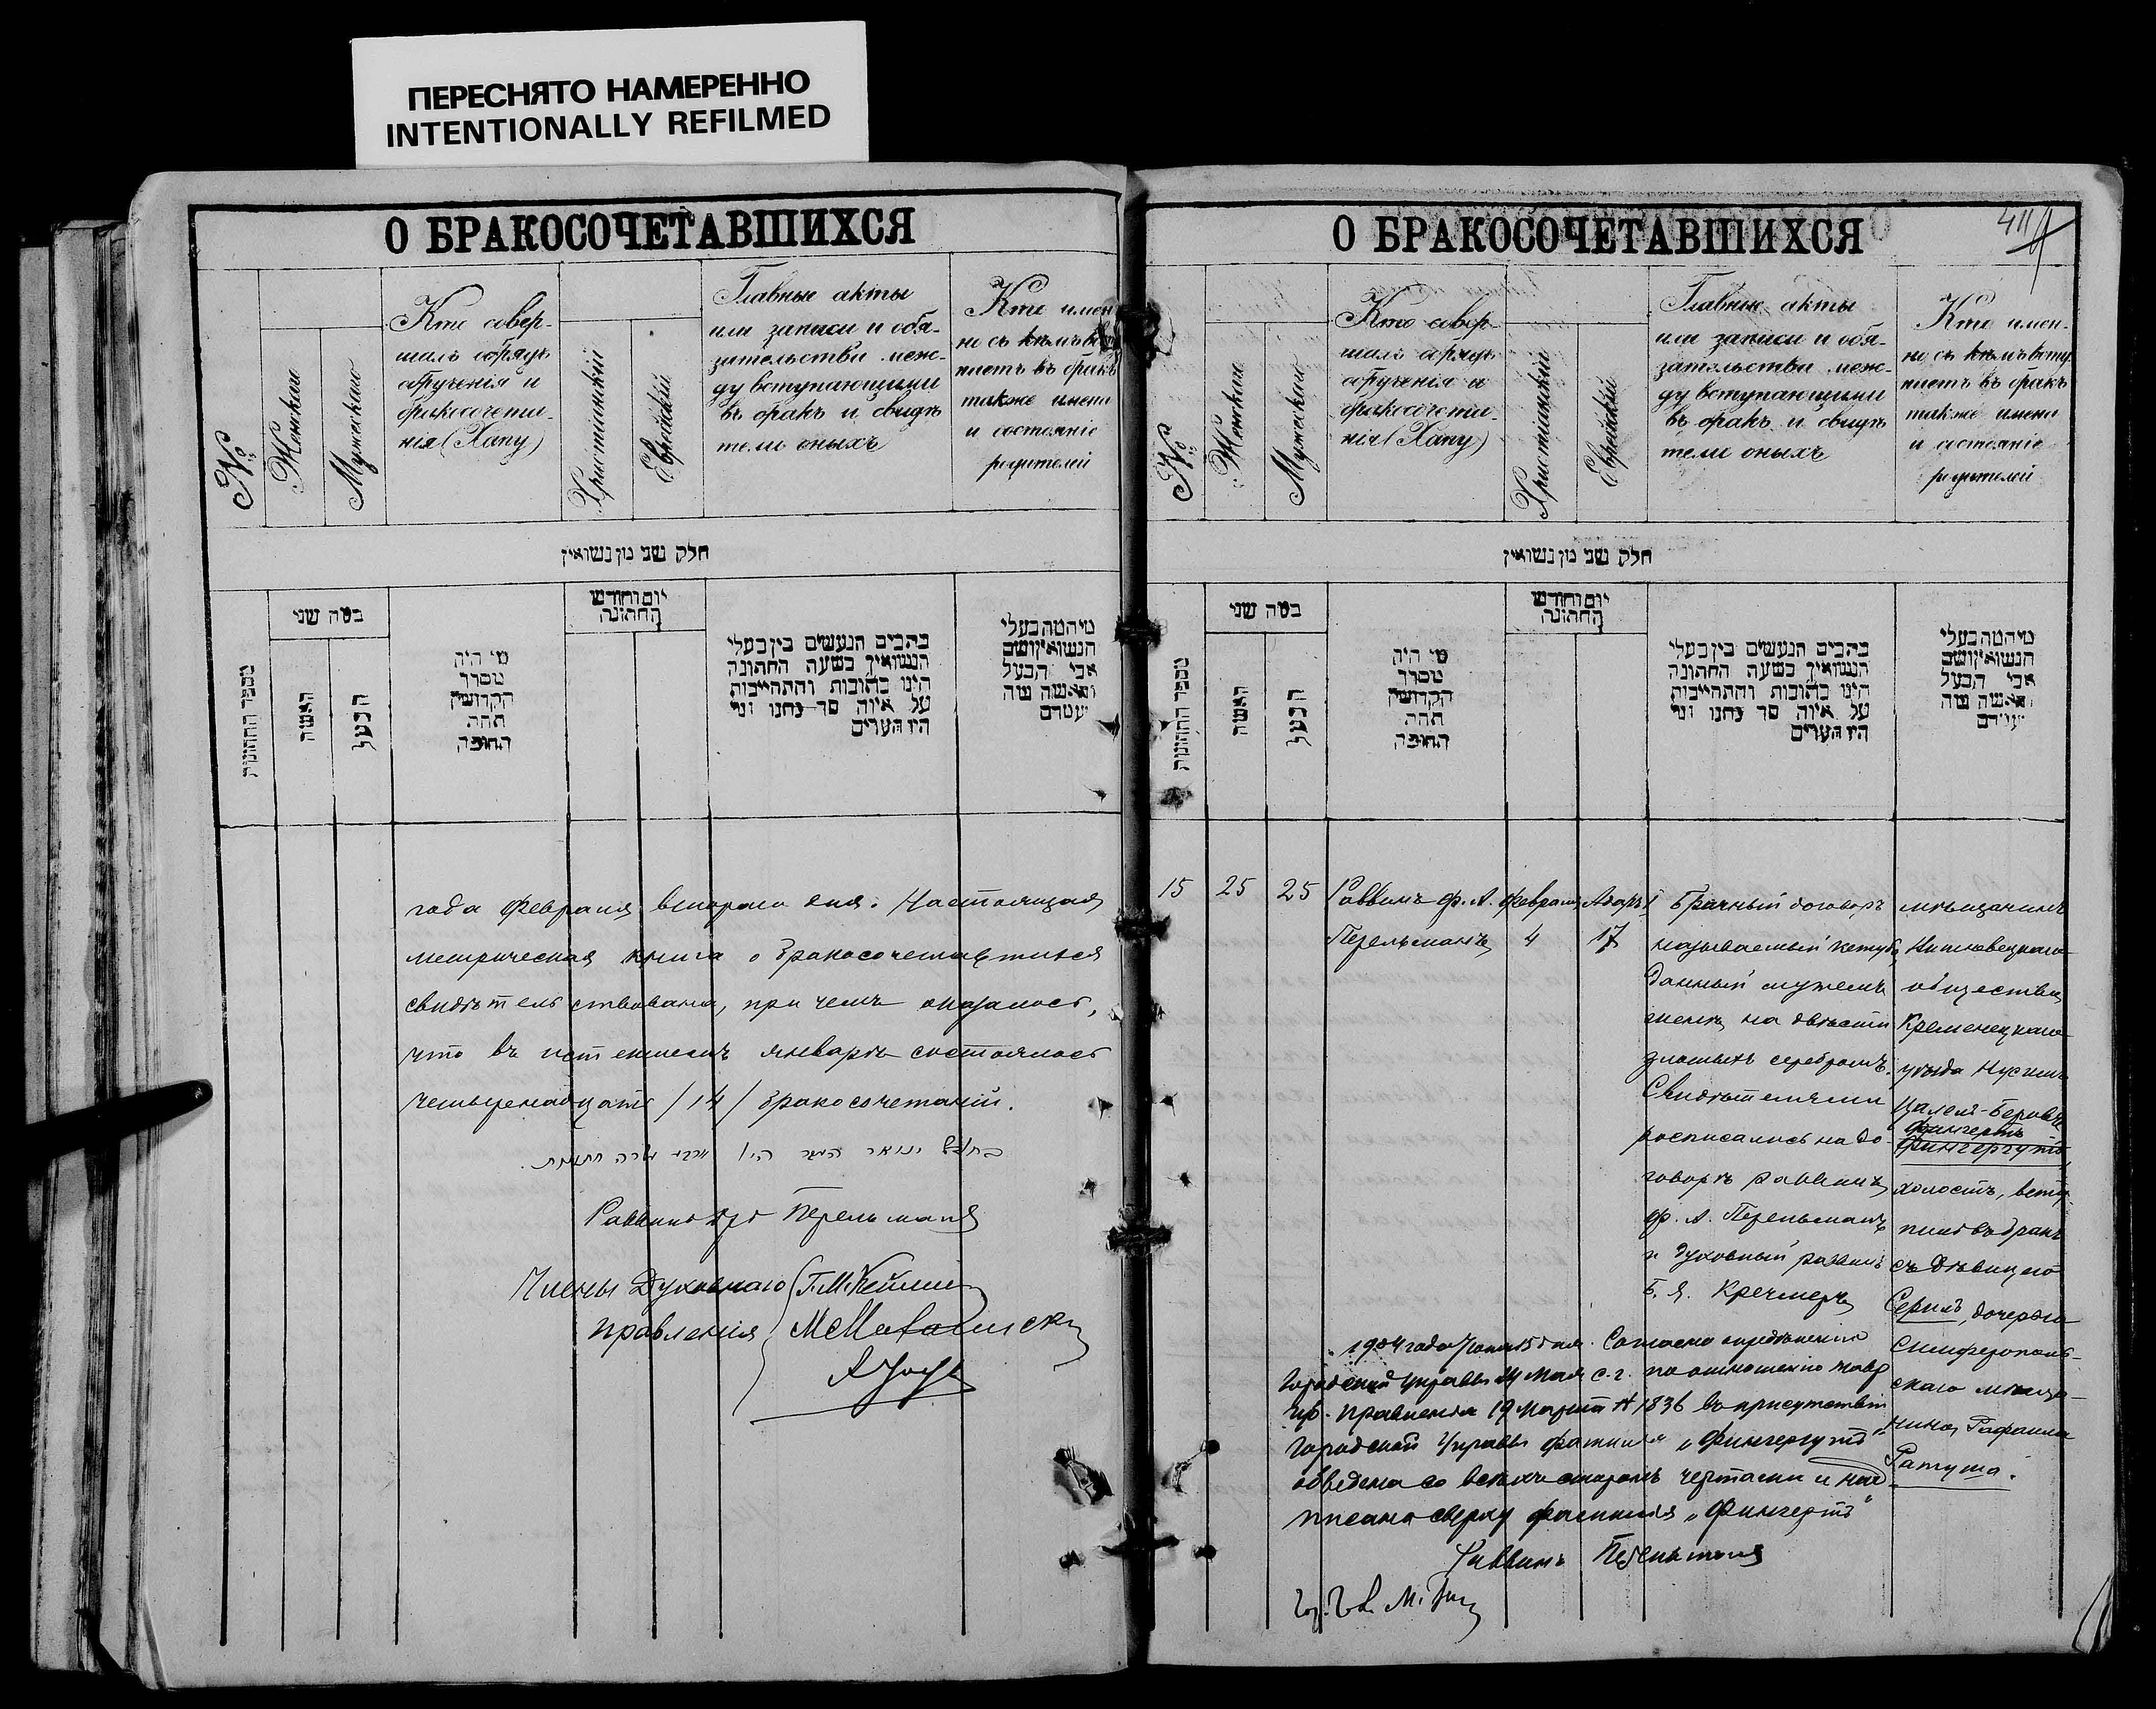 ПЕРЕСНЯТО НАМЕРЕННО
INTENTIONALLY REFILMED
О БРАКОСОЧЕТАВШИХСЯ
№
Женскаго
Мужескаго
Кто совер-
шалъ обрядъ
обрученія и
бракосочета-
нія (Хапу)
Христіанскій
Еврейскій
Главные акты
или записи и обя-
зательства меж-
ду вступающими
въ бракъ и свидѣ
тели оныхъ
Кто имен
но съ кѣмъ
паетъ въ бракъ
также имена
и состояніе
родителей
חלק שני מן נשואין
מספר החתונות
כמה שני
האשה
הבעל
מי היה
מסדר
הקדושין
תחת
החופה
יום וחודש
החתונה
כתבים הנעשים בין בעלי
הנשואין בשעה החתונה
הינו כתובות והתחייבות
על איזה סך נתנו ומי
היו העדים
הנשואין ושם
אבי הבעל
года февраля второго дня. Настоящая
метрическая книга о бракосочетавшихся
свидѣтельствована, при чемъ оказалось,
что въ истекшемъ январѣ состоялось
четырнадцать /14/ бракосочетаній.
Раввинъ Перельманъ
Члены Духовнаго
правленія
О БРАКОСОЧЕТАВШИХСЯ
411
№
Женскаго
Мужескаго
Кто совер-
шалъ обрядъ
обрученія и
бракосочета-
нія (Хапу)
Христіанскій
Еврейскій
Главные акты
или записи и обя-
зательства меж-
ду вступающими
въ бракъ и свидѣ
тели оныхъ
Кто имен-
но съ кѣмъ всту
паетъ въ бракъ
также имена
и состояніе
родителей
חלק שני מן נשואין
מספר החתונות
כמה שני
האשה
הבעל
מי היה
מסדר
הקדושין
תחת
החופה
יום וחודש
החתונה
כתבים הנעשים בין בעלי
הנשואין בשעה החתונה
הינו כתובות והתחייבות
על איזה סך נתנו ומי
היו העדים
הנשואין ושם
אבי הבעל
15 25 25
Раввинъ Ф. А.
Перельманъ
Февраля
4
Адаръ I
17
Брачный договоръ
называемый кетуба,
данный мужемъ
женѣ, на двѣсти
злотыхъ серебромъ.
Свидѣтелями
росписались на до-
говорѣ раввинъ
Ф. А. Перельманъ
и духовный раввинъ
Б. Я. Кречмеръ
мѣщанинъ
общества
Кременецкаго
уѣзда Нусинъ
Цалель-Беровъ
Фингертъ
Фингергутъ,
холостъ, всту-
пилъ въ бракъ
съ дѣвицею
Серилъ, дочерью
Симферополь-
скаго мѣща-
нина Рафаила
Ратуша.
1904 года Іюня 15 дня. Согласно опредѣленію
Городской Управы Мая с. г. по отношенію Тавр
губ. Правленія 19 Марта № 1836 въ присутствіи
Городской Управы фамилія „Фингергутъ“
обведена со всѣхъ сторонъ чертами и над-
писана сверху фамилія „Фингертъ“
Раввинъ Перельманъ